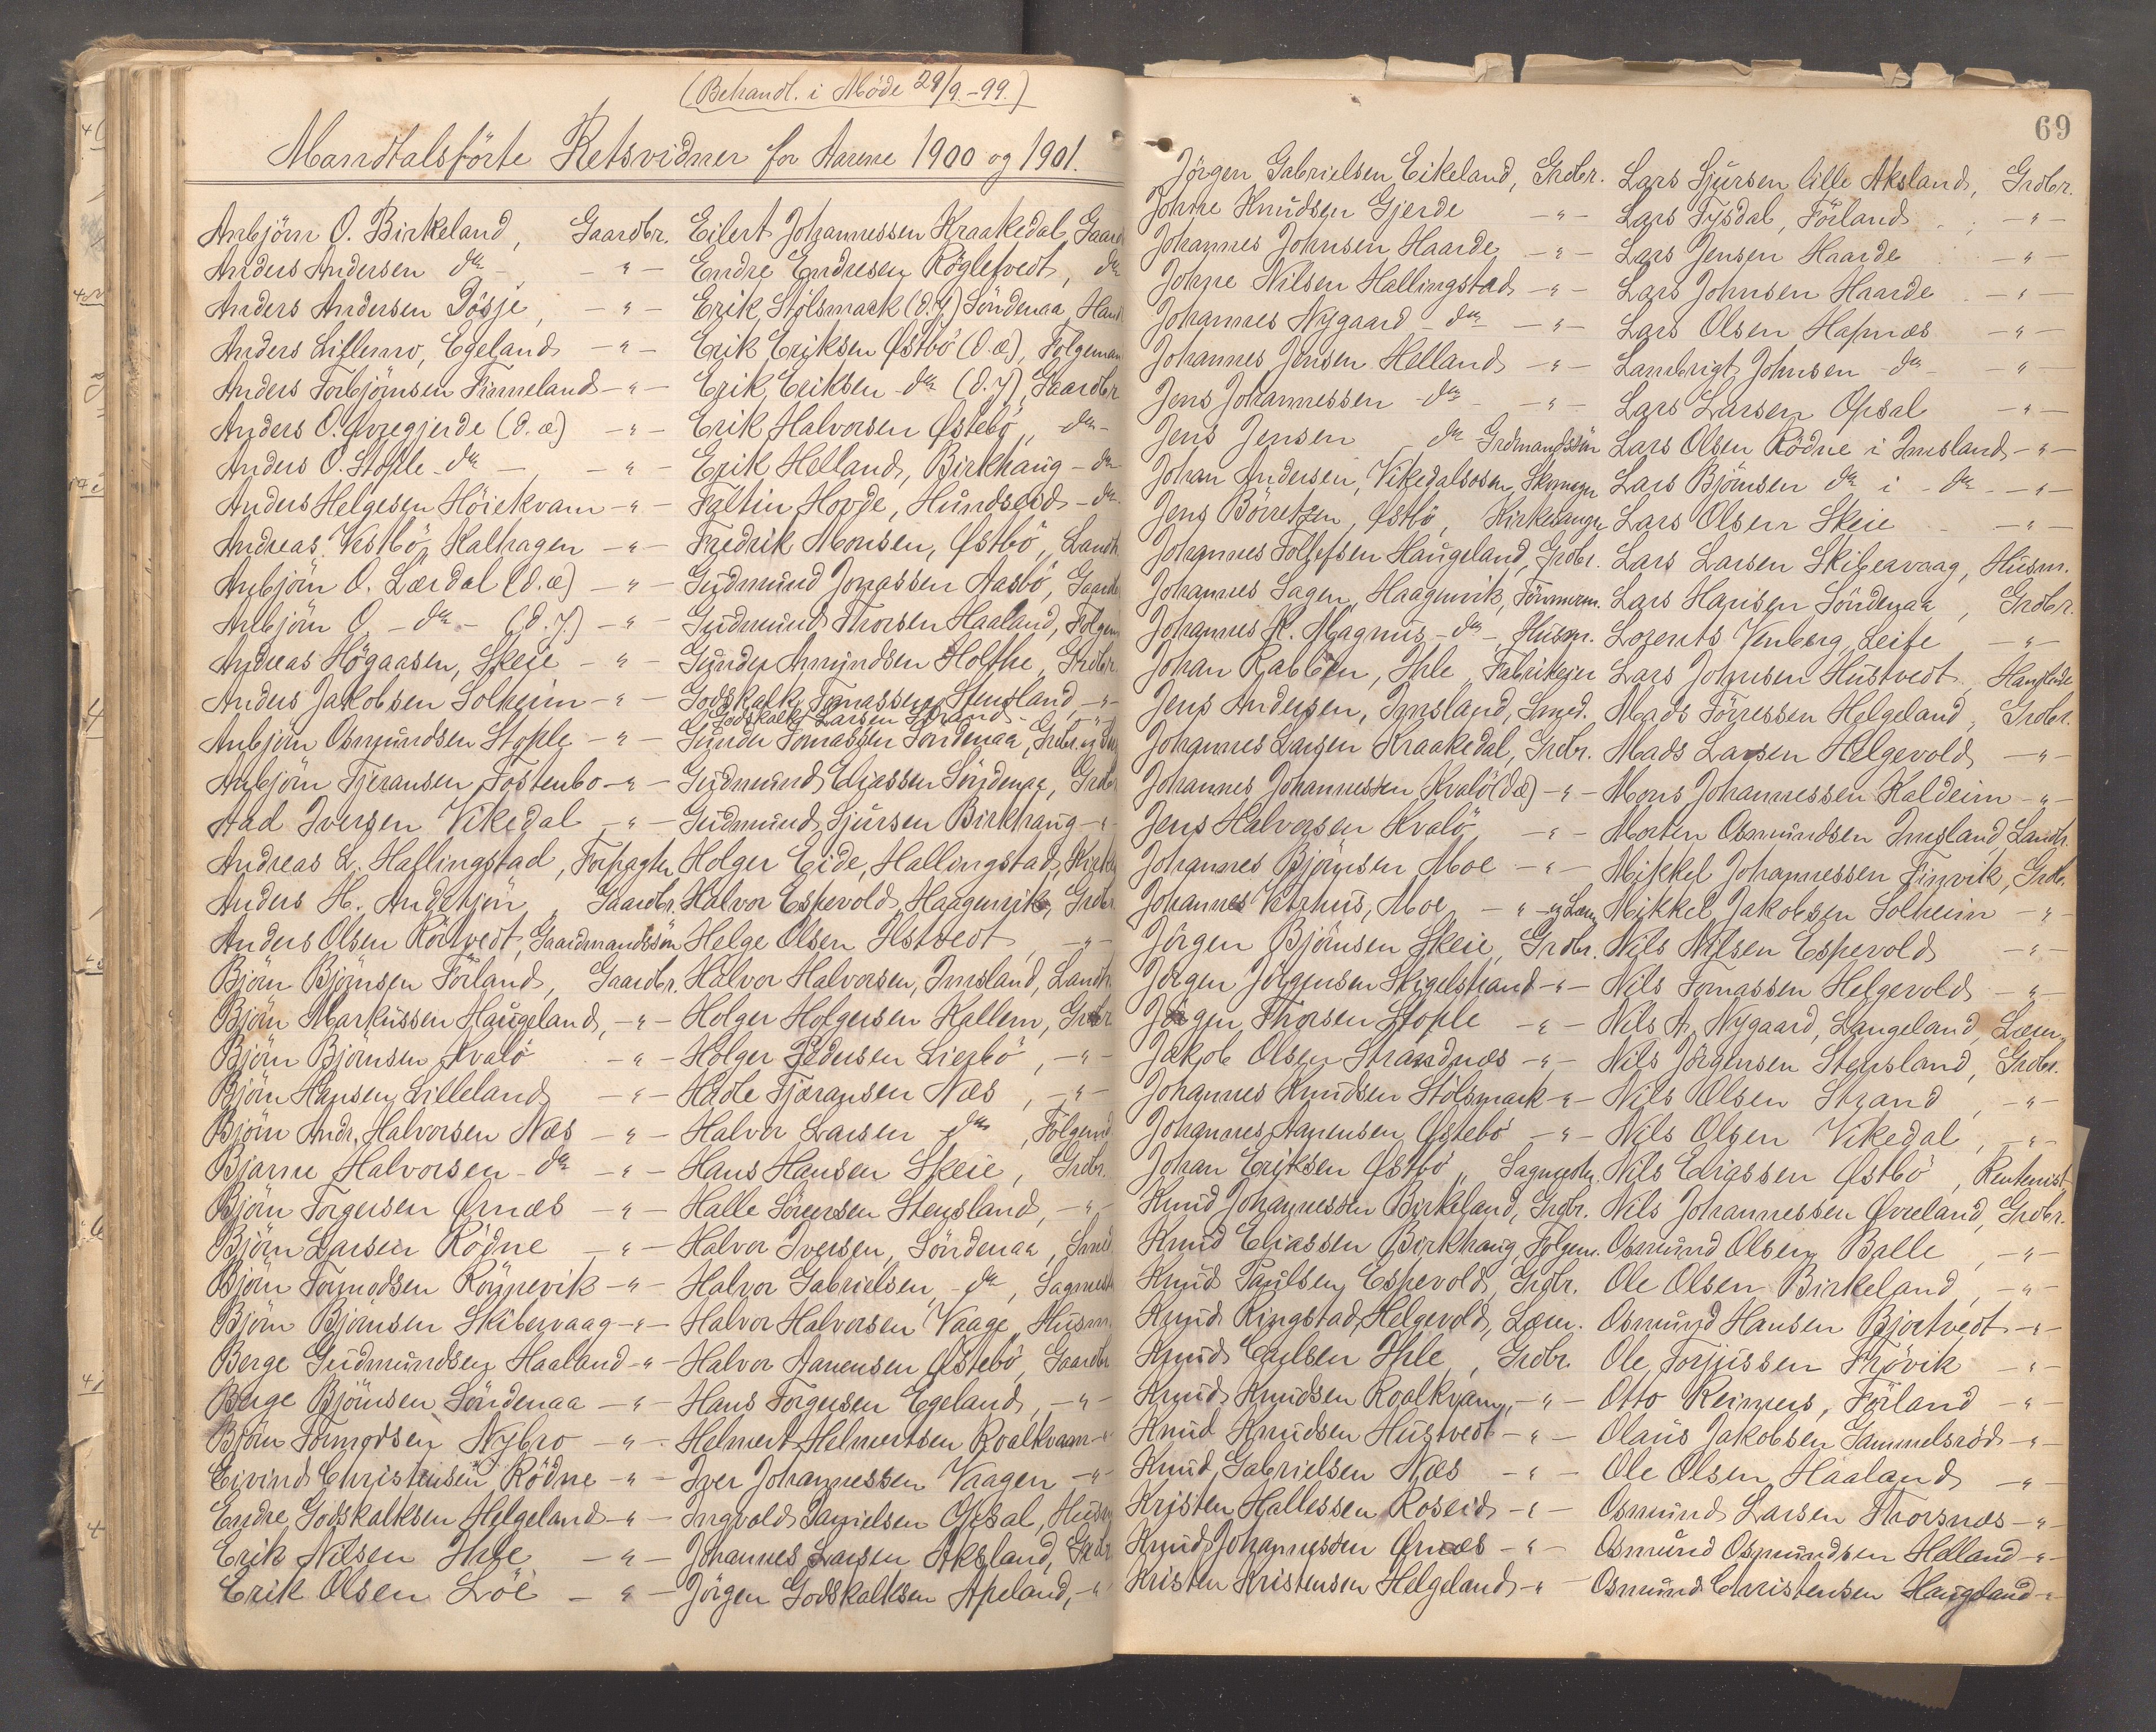 (Behandl. i Möde 29/9.-99.)
Mandtalsförte Retsvidner for Aarene 1900 og 1901.
Anbjörn O. Birkeland, Gaardbr.
Anders Andersen do - - " -
Anders Andersen Dösje, - " -
Anders Lillemo, Egeland - " -
Anders Torbjörnsen Finneland - " -
Anders O. Øvregjerde (d.æ) - " -
Anders O. Stople - do - - " -
Anders Helgesen Höiekvam - " -
Andreas Vestbö, Kalhagen - " -
Anbjörn O. Lærdal (d.æ) - " -
Anbjörn O. - do - (d.y) - " -
Andreas Högaasen, Skeie - " -
Anders Jakobsen Solheim - " -
Anbjörn Osmundsen Stople - " -
Anbjörn Tjeransen Tostenbo - " -
Aad Iversen Vikedal - " -
Andreas L. Hallingstad, Forpagter
Anders H. Gaardbr.
Anders Olsen Rörtvedt, Gaardmandssön
Björn Björnsen Förland, Gaardbr.
Björn Markussen Haugeland, - " -
Björn Björnsen Kvalö - " -
Björn Hansen Lilleland - " -
Björn Andr. Halvorsen Næs - " -
Bjarne Halvorsen - do - " -
Björn Torgersen Ørnæs - " -
Björn Larsen Rödne - " -
Björn Tormodsen Rönnevik - " -
Björn Björnsen Skibervaag - " -
Berge Gudmundsen Haaland - " -
Berge Björnsen Söndenaa - " -
Björn Tormodsen Nybro - " -
Eivind Christensen Rödne - " -
Endre Godskalksen Helgeland - " -
Erik Nilsen Ihle - " -
Erik Olsen Löe - " -
Eilert Johannessen Kraakedal, Gaard
Endre Endresen Röglefvedt, do
Erik Stölsmark (d.y) Söndenaa, Hand
Erik Eriksen Østbö (d.æ), Folgeman
Erik Eriksen - do (d.y), Gaardbr
Erik Halvorsen Østebö, - do -
Erik Helland, Birkhaug - do -
Faltin Hovde, Hundseid - do -
Fredrik Monsen, Østbö, Landh
Gudmund Jonassen Aasbö, Gaardb
Gudmund Thorsen Haaland, Folgem
Gunder Amundsen Holthe, Grdbr.
Godskalk Tomassen Stensland, - " -
Godskalk Larsen Strand - " -
Gunder Tomassen Söndenaa, Grdbr. og
Gudmund Eliassen Söndenaa, Grdbr
Gudmund Sjursen Birkhaug - " -
Holger Eide, Hallingstad, Kirkes
Halvor Espevold, Haagenvik, Grdbr
Helge Olsen Ilstvedt, - " -
Halvor Halvorsen, Imsland, Landh.
Holger Holgersen Kallem, Grdbr
Holger Pedersen Lierbö, - " -
Hadle Tjæransen Næs, - " -
Halvor Larsen - do -, Fölgemd
Hans Hansen Skeie, Grdbr.
Halle Sörensen Stensland, - " -
Halvor Iversen, Söndenaa, Smed
Halvor Gabrielsen, - do, Sagmest
Halvor Halvorsen Vaage, Husm
Halvor Aanensen Østebö, Gaardbr
Hans Torgersen Egeland, - " -
Helmert Helmertsen Roalkvam - "
Iver Johannessen Vaagen - " -
Ingvald Danielsen Opsal, Husm
Johannes Larsen Aksland, Grdbr
Jörgen Godskalksen Apeland, - "
69
Jörgen Gabrielsen Eikeland, Grdbr.
Johne Knudsen Gjerde - " -
Johannes Johnsen Haarde - " -
Johne Nilsen Hallingstad - " -
Johannes Nygaard - do - " -
Johannes Jensen Helland - " -
Jens Johannessen - do - - " -
Jens Jensen - do Grdmandssön
Johan Andersen, Vikedalsosen, Skomager
Jens Börretzen, Østbö, Kirkesanger
Johannes Tollefsen Haugeland, Grdbr.
Johannes Sagen, Haagenvik, Tömmerm.
Johannes K. Magnus - do -, Husm.
Johan Rabben, Ihle, Fabrikejer
Jens Andersen, Imsland, Smed.
Johannes Larsen Kraakedal, Grdbr.
Johannes Johannessen Kvalö (d.æ) - " -
Jens Halvorsen Kvalö - " -
Johannes Björnsen Moe - " -
Johannes Vetrhus, Moe - " - og Læns
Jörgen Björnsen Skeie, Grdbr.
Jörgen Jörgensen Skigelstrand - " -
Jörgen Thorsen Stople - " -
Jakob Olsen Strandnæs - " -
Johannes Knudsen Stölsmark - " -
Johannes Aanensen Østebö - " -
Johan Eriksen Østbö, Sagmester
Knud Johannessen Birkeland, Grdbr.
Knud Eliassen Birkhaug, Folgem.
Knud Paulsen Espevold, Grdbr.
Knud Ringstad, Helgevold, Lærer.
Knud Ihle, Grdbr.
Knud Knudsen Roalkvam, - " -
Knud Knudsen Hustvedt - " -
Knud Gabrielsen Næs - " -
Kristen Hallessen Roseid - " -
Knud Johannessen Ørnæs - " -
Kristen Kristensen Helgeland - "
Lars Sjursen lille Aksland, Grdbr.
Lars Tysdal, Förland - " -
Lars Jensen Haarde - " -
Lars Johnsen Haarde - " -
Lars Olsen Hapnæs - " -
Lambrigt Johnsen - do - - " -
Lars Larsen Opsal - " -
Lars Olsen Rödne i Imsland - " -
Lars Björnsen do i - do - - " -
Lars Olsen Skeie - " -
Lars Larsen Skibervaag, Husm.
Lars Hansen Söndenaa, Grdbr.
Lorents Venberg, Leite - " -
Lars Johnsen Hustvedt,
Mads Förressen Helgeland, Grdbr.
Mads Larsen Helgevold - " -
Mons Johannessen Kaldeim - " -
Morten Osmundsen Imsland, Landh.
Mikkel Johannessen Finvik, Grdbr.
Mikkel Jakobsen Solheim - " -
Nils Nilsen Espevold - " -
Nils Tomassen Helgevold - " -
Nils A. Nygaard, Langeland, Lærer
Nils Jörgensen Stensland, Grdbr.
Nils Olsen Strand, - " -
Nils Olsen Vikedal, - " -
Nils Eliassen Østbö, Rentenist
Nils Johannessen Øvreland, Grdbr.
Osmund Olsen Balle, - " -
Ole Olsen Birkeland, - " -
Osmund Hansen Bjortvedt - " -
Ole Torjussen Frövik - " -
Otto Reimers, Förland - " -
Olaus Jakobsen Gammelsröd - " -
Ole Olsen Haaland - " -
Osmund Larsen Thorsnæs - " -
Osmund Osmundsen Helland - " -
Osmund Christensen Haugeland - " -